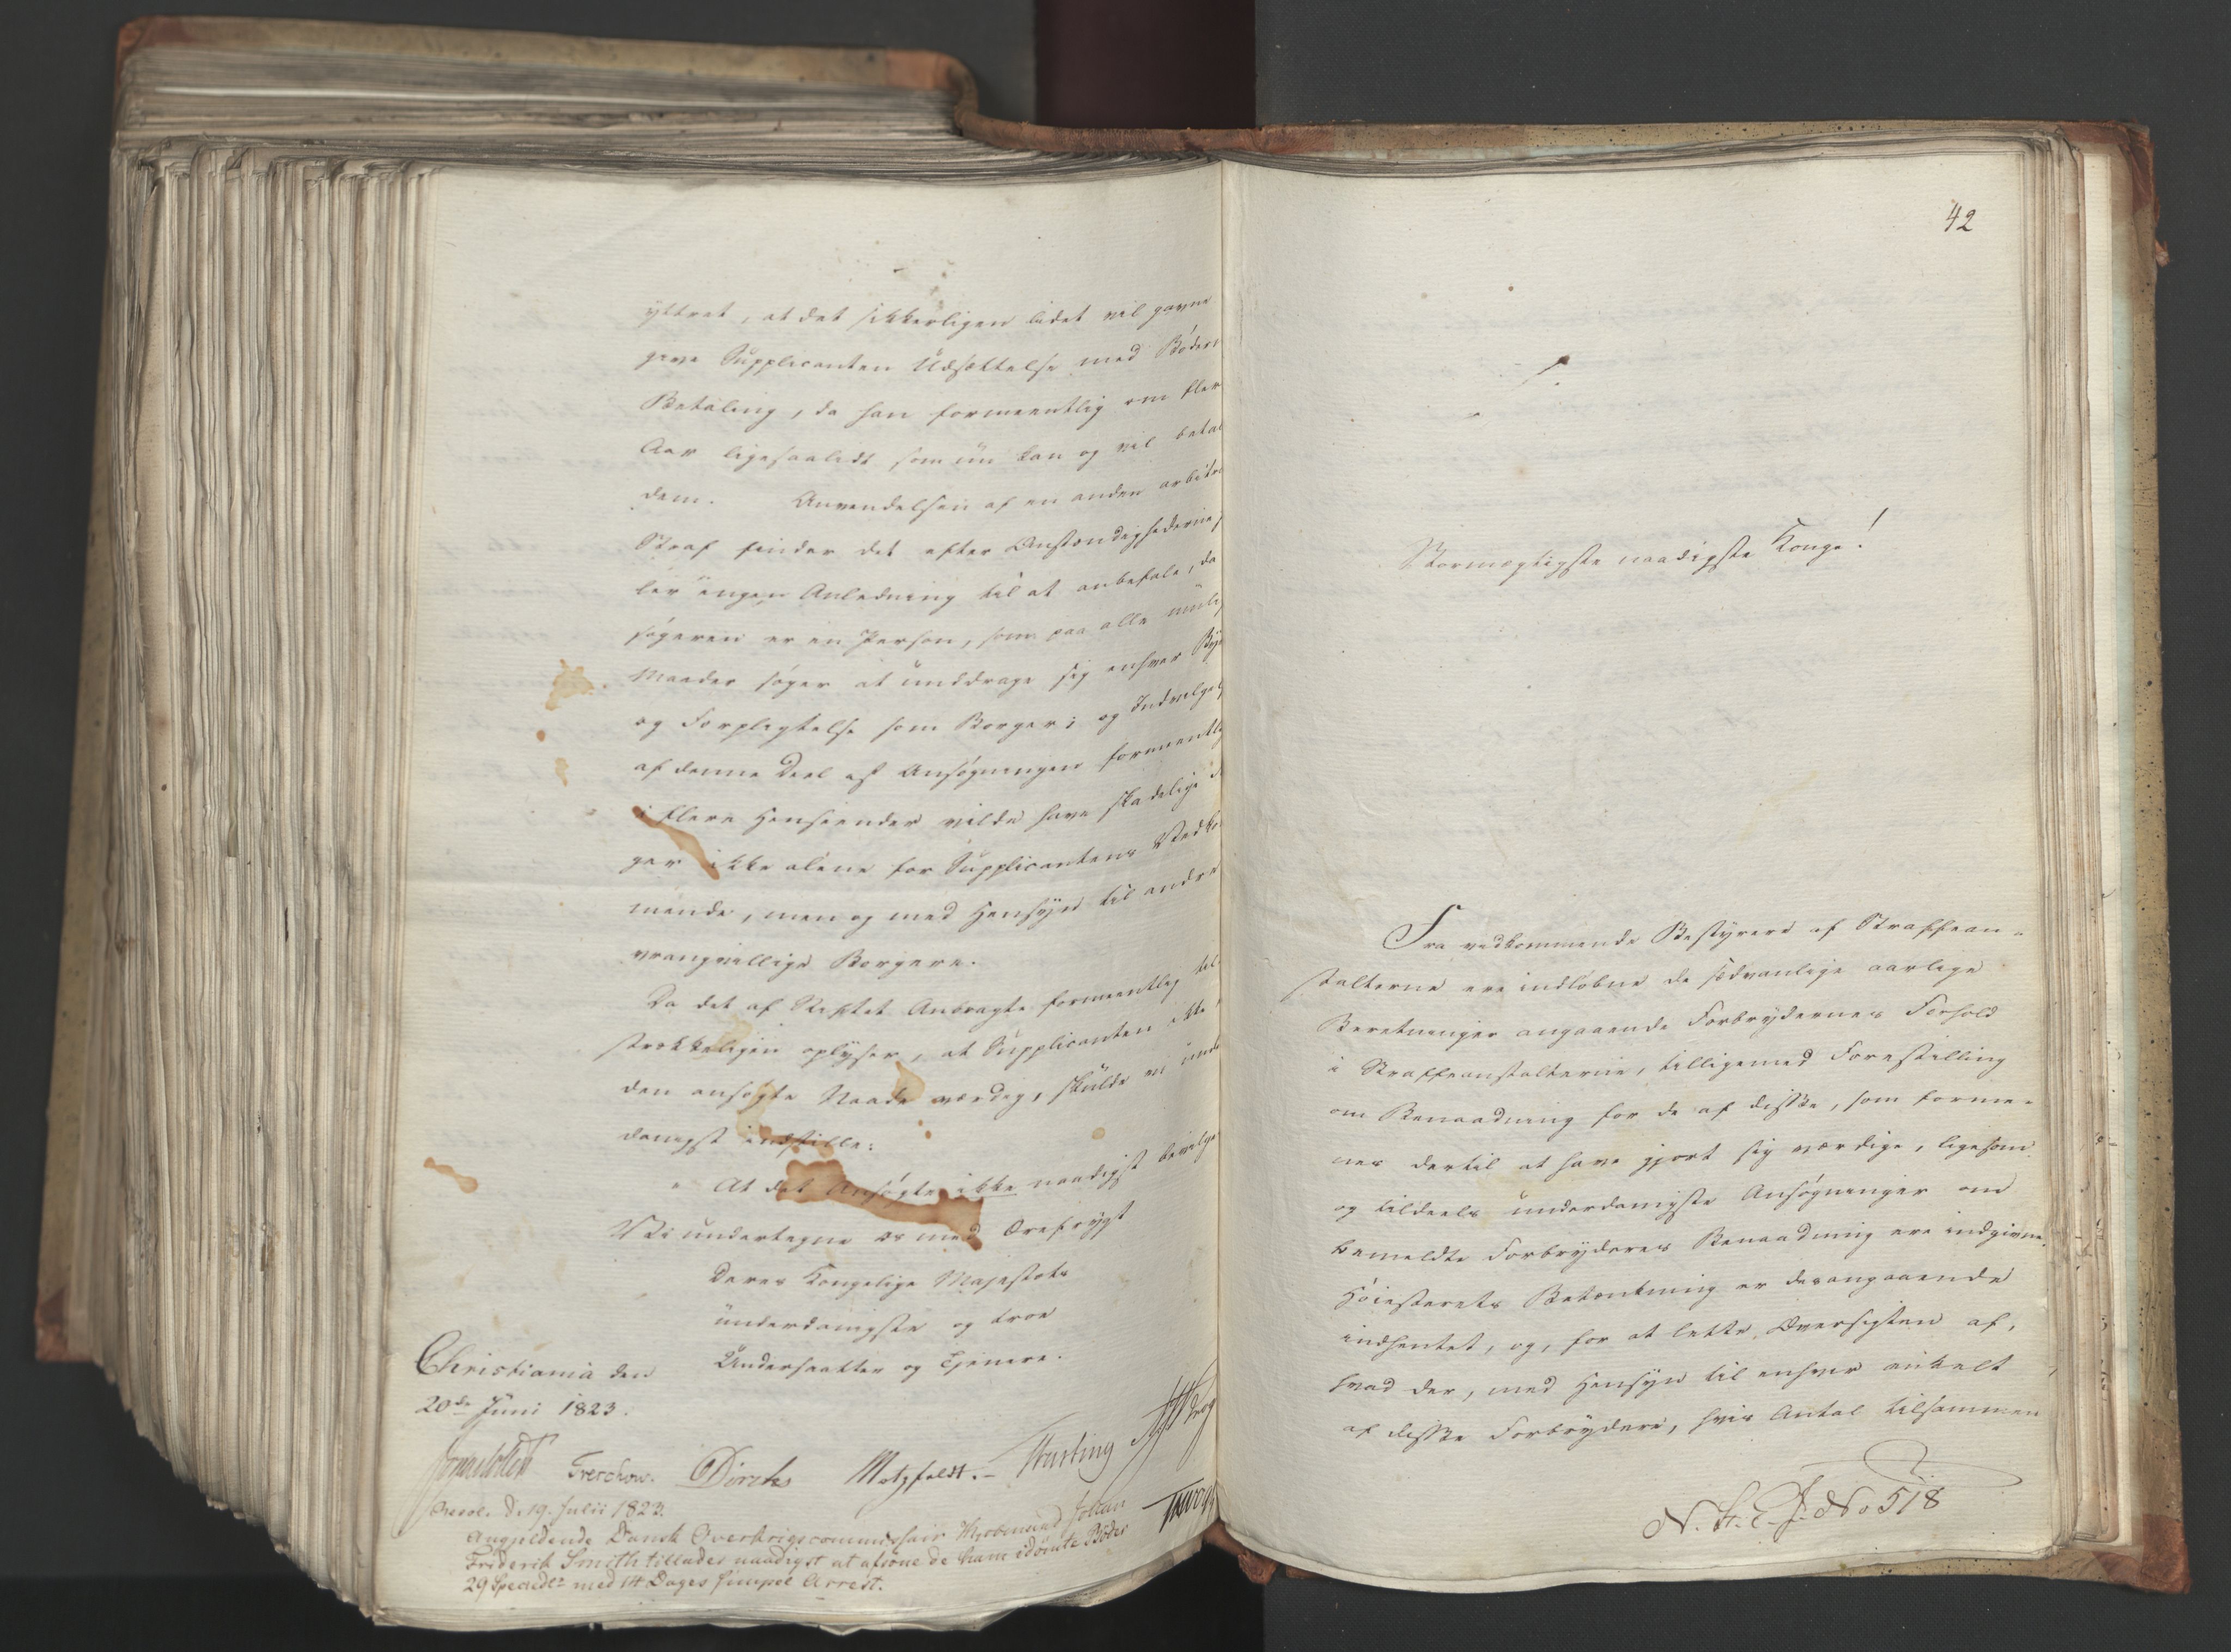 yttret, at det sikkerligen lidet vil gavne
give Supplicanten Udsættelse med Bøders
Betaling, da han formeentlig om flere
Aar ligesaalidt som nu kan og vil betal
dem. Anvendelsen af en anden arbitr
Straf finder det efter Omstændighederne
ler ingen Anledning til at anbefale, da
søgeren er en Person, som paa alle muli
Maader søger at unddrage sig enhver
og Forpligtelse som Borger; og
af denne Deel af Ansøgningen formeentlig
i flere Henseender vilde have skadelige
ger ikke alene for Supplicantens Vedko
mende, men og med Hensyn til andre
vrangvillige Borgere.
Da det af Stiftet Anbragte formeentlig til
strækkeligen oplyser, at Supplicanten ikke
den ansøgte Naade værdig, skulde vi und
danigst indstille:
" At det Ansøgte ikke naadigst bevilge
Vi undertegne os med Ærefrygt
Deres Kongelige Majestæts
underdanigste og troe
Undersaatter og Tjenere.
Christiania den
20de Juni 1823.
Treschow. Diriks Motzfeldt.
Resol. D. 19. Julii 1823.
Angjeldende Dansk Overkrigscommissair Johan
Friderik Smith tillades naadigst at afsone de ham idømte Bøder
29 Specidlr med 14 Dages simpel Arrest.
42
Stormægtigste naadigste Konge!
Fra vedkommende Bestyrere af Straffean-
stalterne ere indløbne de sædvanlige aarlige
Beretninger angaaende Forbrydernes Forhold
i Straffeanstalterne, tilligemed Forestilling
om Benaadning for de af disse, som forme-
nes dertil at have gjort sig værdige, ligesom
og tildeels underdanigste Ansøgninger om
bemeldte Forbryderes Benaadning ere indgivne.
Høiesterets Betænkning er desangaaende
indhentet, og, for at lette Oversigten af,
hvad der, med Hensyn til enhver enkelt
af disse Forbrydere, hvis Antal tilsammen
No 518